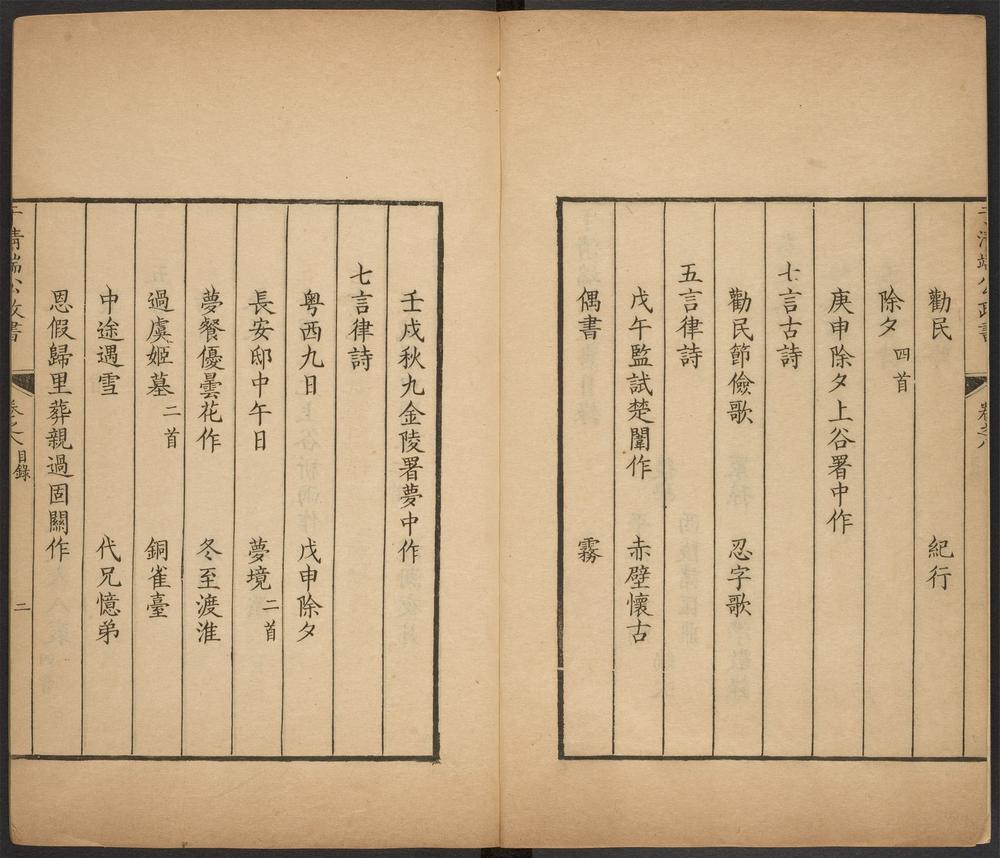 于清端公政書 卷之八
勸民 紀行
除夕四首
庚申除夕上谷署中作
七言古詩
勸民節儉歌 忍字歌
五言律詩
戊午監試楚闈作 赤壁懷古
偶書 霧
壬戌秋九金陵署夢中作
七言律詩
粵西九日 戊申除夕
長安邸中午日 夢境二首
夢餐優曇花作 冬至渡淮
過虞姬墓二首 銅雀臺
中途遇雪 代兄憶弟
恩假歸里葬親過固關作
于清端公政書 卷之八目錄 二